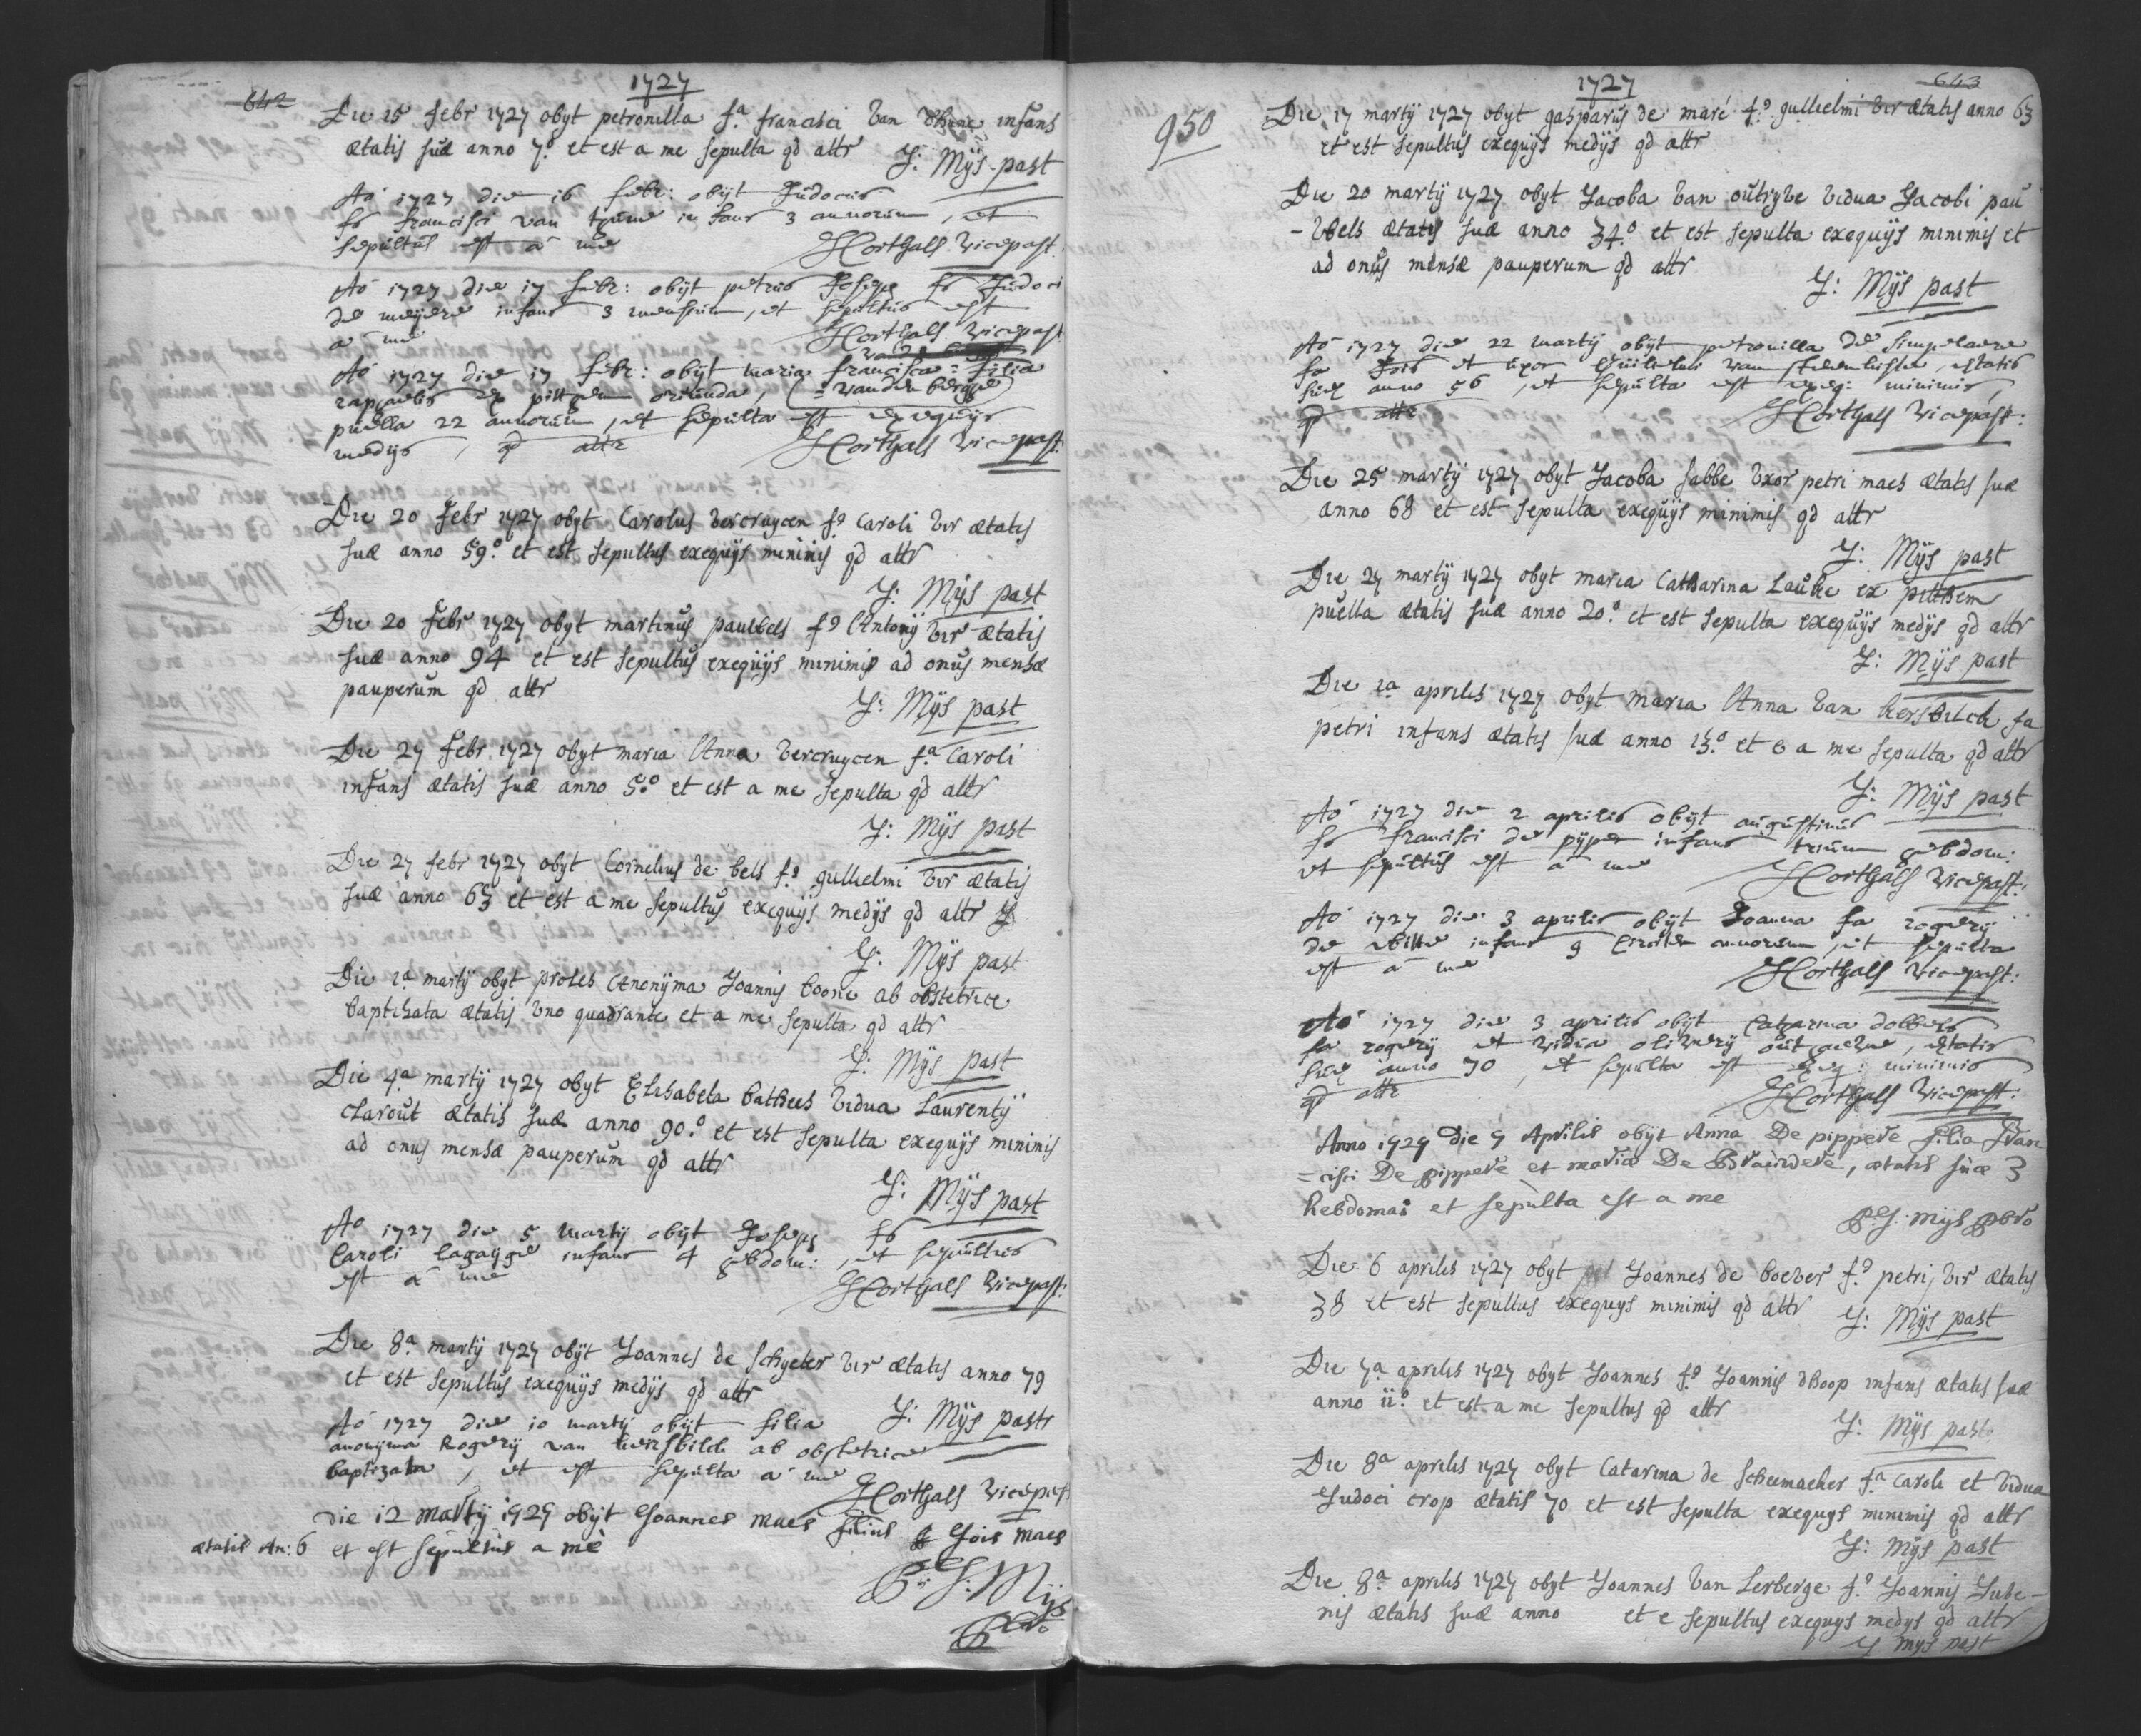 642
1727
Die 15 febr 1727 obyt petronilla f.a francisci van Thune infans
ætatis suæ anno 7.o et est a me sepulta qd attr
J: Mÿs past
Ao 1727 die 16 febr: obÿt Judocus
fs francisci van tune infans 3 annorum, et
sepultus est a me
Horthals vicepast.
Ao 1727 die 17 febr: obÿt petrus Joseph fs Judoci
de meÿere infans 3 mensium, et sepultus est
a me
Horthals vicepast
Ao 1727 die 17 febr: obÿt maria francisca = filia
raphaelis ex pitthem oriunda, (= vanden berghe)
puella 22 annorum, et sepulta est exequÿs
medÿs, qd attr
Horthals vicepast:
Die 20 febr 1727 obyt Carolus vercruycen f.s Caroli vir ætatis
suæ anno 59.o et est sepultus exequÿs minimis qd attr
J: Mÿs past
Die 20 febr 1727 obyt martinus pauwels f.s Antonÿ vir ætatis
suæ anno 94 et est sepultus exequÿs minimis ad onus mensæ
pauperum qd attr
J: Mÿs past
Die 27 febr. 1727 obyt maria Anna vercruycen f.a Caroli
infans ætatis suæ anno 5.o et est a me sepulta qd attr
J: Mÿs past
Die 27 febr 1727 obyt Cornelius de bels f.s gullielmi vir ætatis
suæ anno 63 et est a me sepultus exequÿs medÿs qd attr
J: Mÿs past
Die 1a martÿ obyt proles Anonÿma Joannis Coone ab obstetrice
baptizata ætatis uno quadrante et a me sepulta qd attr
J: Mÿs past
Die 4.a martÿ 1727 obyt Elisabeta batheus vidua Laurentÿ
clarout ætatis suæ anno 90.o et est sepulta exequÿs minimis
ad onus mensæ pauperum qd attr
J: Mÿs past
Ao 1727 die 5 martÿ obÿt Joseph fs
Caroli Cagaÿge infans 4 hebdom: , et sepultus
est a me
Horthals vicepast:
Die 8.a martÿ 1727 obÿt Joannes de schyeter vir ætatis anno 79
et est sepultus exequÿs medÿs qd attr
J: Mÿs pastr
Ao 1727 die 10 martÿ obÿt filia
anonÿma Rogerÿ van keirsbilck ab obstetrice
baptizata, et est sepulta a me
Horthals vicepast
Die 12 Martÿ 1727 obÿt Joannes maes filius Jois maes
ætatis An: 6 et est sepultus a me
J: Mÿs
950
1727
643
Die 17 martÿ 1727 obyt gasparus de maré f.s gullielmi vir ætatis anno 63
et est sepultus exequÿs medÿs qd attr
Die 20 martÿ 1727 obyt Jacoba van outryve vidua Jacobi pau
-wels ætatis suæ anno 34.o et est sepulta exequÿs minimis et
ad onus mensæ pauperum qd attr
J: Mÿs past
Ao 1727 die 22 martÿ obÿt petronilla de simpelaere
fa Jois et uxor Guilielmi van steenkiste, ætatis
suæ anno 56, et sepulta est exeq: minimis
qd attr
Horthals vicepast:
Die 25 martÿ 1727 obyt Jacoba sabbe uxor petri maes ætatis suæ
anno 68 et est sepulta exequÿs minimis qd attr
J: Mÿs past
Die 27 martÿ 1727 obyt maria Catharina Lauke ex pitthem
puella ætatis suæ anno 20.o et est sepulta exequÿs medÿs qd attr
J: Mÿs past
Die 1a aprilis 1727 obyt maria Anna van kersbilck fa
petri infans ætatis suæ anno 13.o et e a me sepulta qd attr
J: Mÿs past
Ao 1727 die 2 aprilis obÿt augustinus
fs francisci de pÿper infans trium hebdom:
et sepultus est a me
Horthals vicepast:
Ao 1727 die 3 aprilis obÿt Joanna fa rogerÿ
de witte infans 9 circiter annorum, et sepulta
est a me
Horthals vicepast:
Ao 1727 die 3 aprilis obÿt Catharina dobbels
fa rogerÿ et vidua oliverÿ outrieve, ætatis
suæ anno 70, et sepulta est exeq: minimis
qd attr
Horthals vicepast:
Anno 1727 Die 4 Aprilis obÿt Anna De pippere filia Fran
=cisci De pippere et mariæ De Brawdere, ætatis suæ 3
hebdomas et sepulta est a me
P: J: Mÿs pbro
Die 6 aprilis 1727 obyt Joannes de boever f.s petri vir ætatis
38 et est sepultus exequys minimis qd attr
J: Mÿs past
Die 7.a aprilis 1727 obyt Joannes f.s Joannis dhoop infans ætatis suæ
anno ii.o et est a me sepultus qd attr
J: Mÿs past.
Die 8a aprilis 1727 obyt Catarina de scheemaeker f.a Caroli et vidua
Judoci crop ætatis 70 et est sepulta exequys minimis qd attr
J: Mÿs past
Die 8.a aprilis 1727 obyt Joannes van Lerberge f.s Joannis Juve-
nis ætatis suæ anno et e sepultus exequys medys qd attr
J Mÿs past